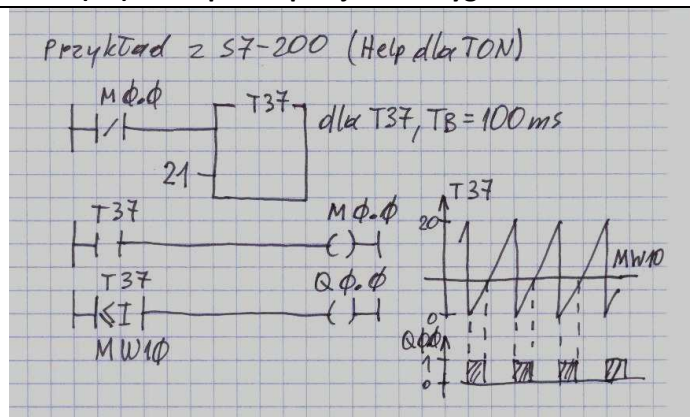 Przykład z S7-200 (Help dla TON)
M0.0
T37
dla T37, TB=100ms
21
T37
M0.0
T37
Q0.0
≤I
MW10
T37
20
MW10
0
Q0.0
1
0